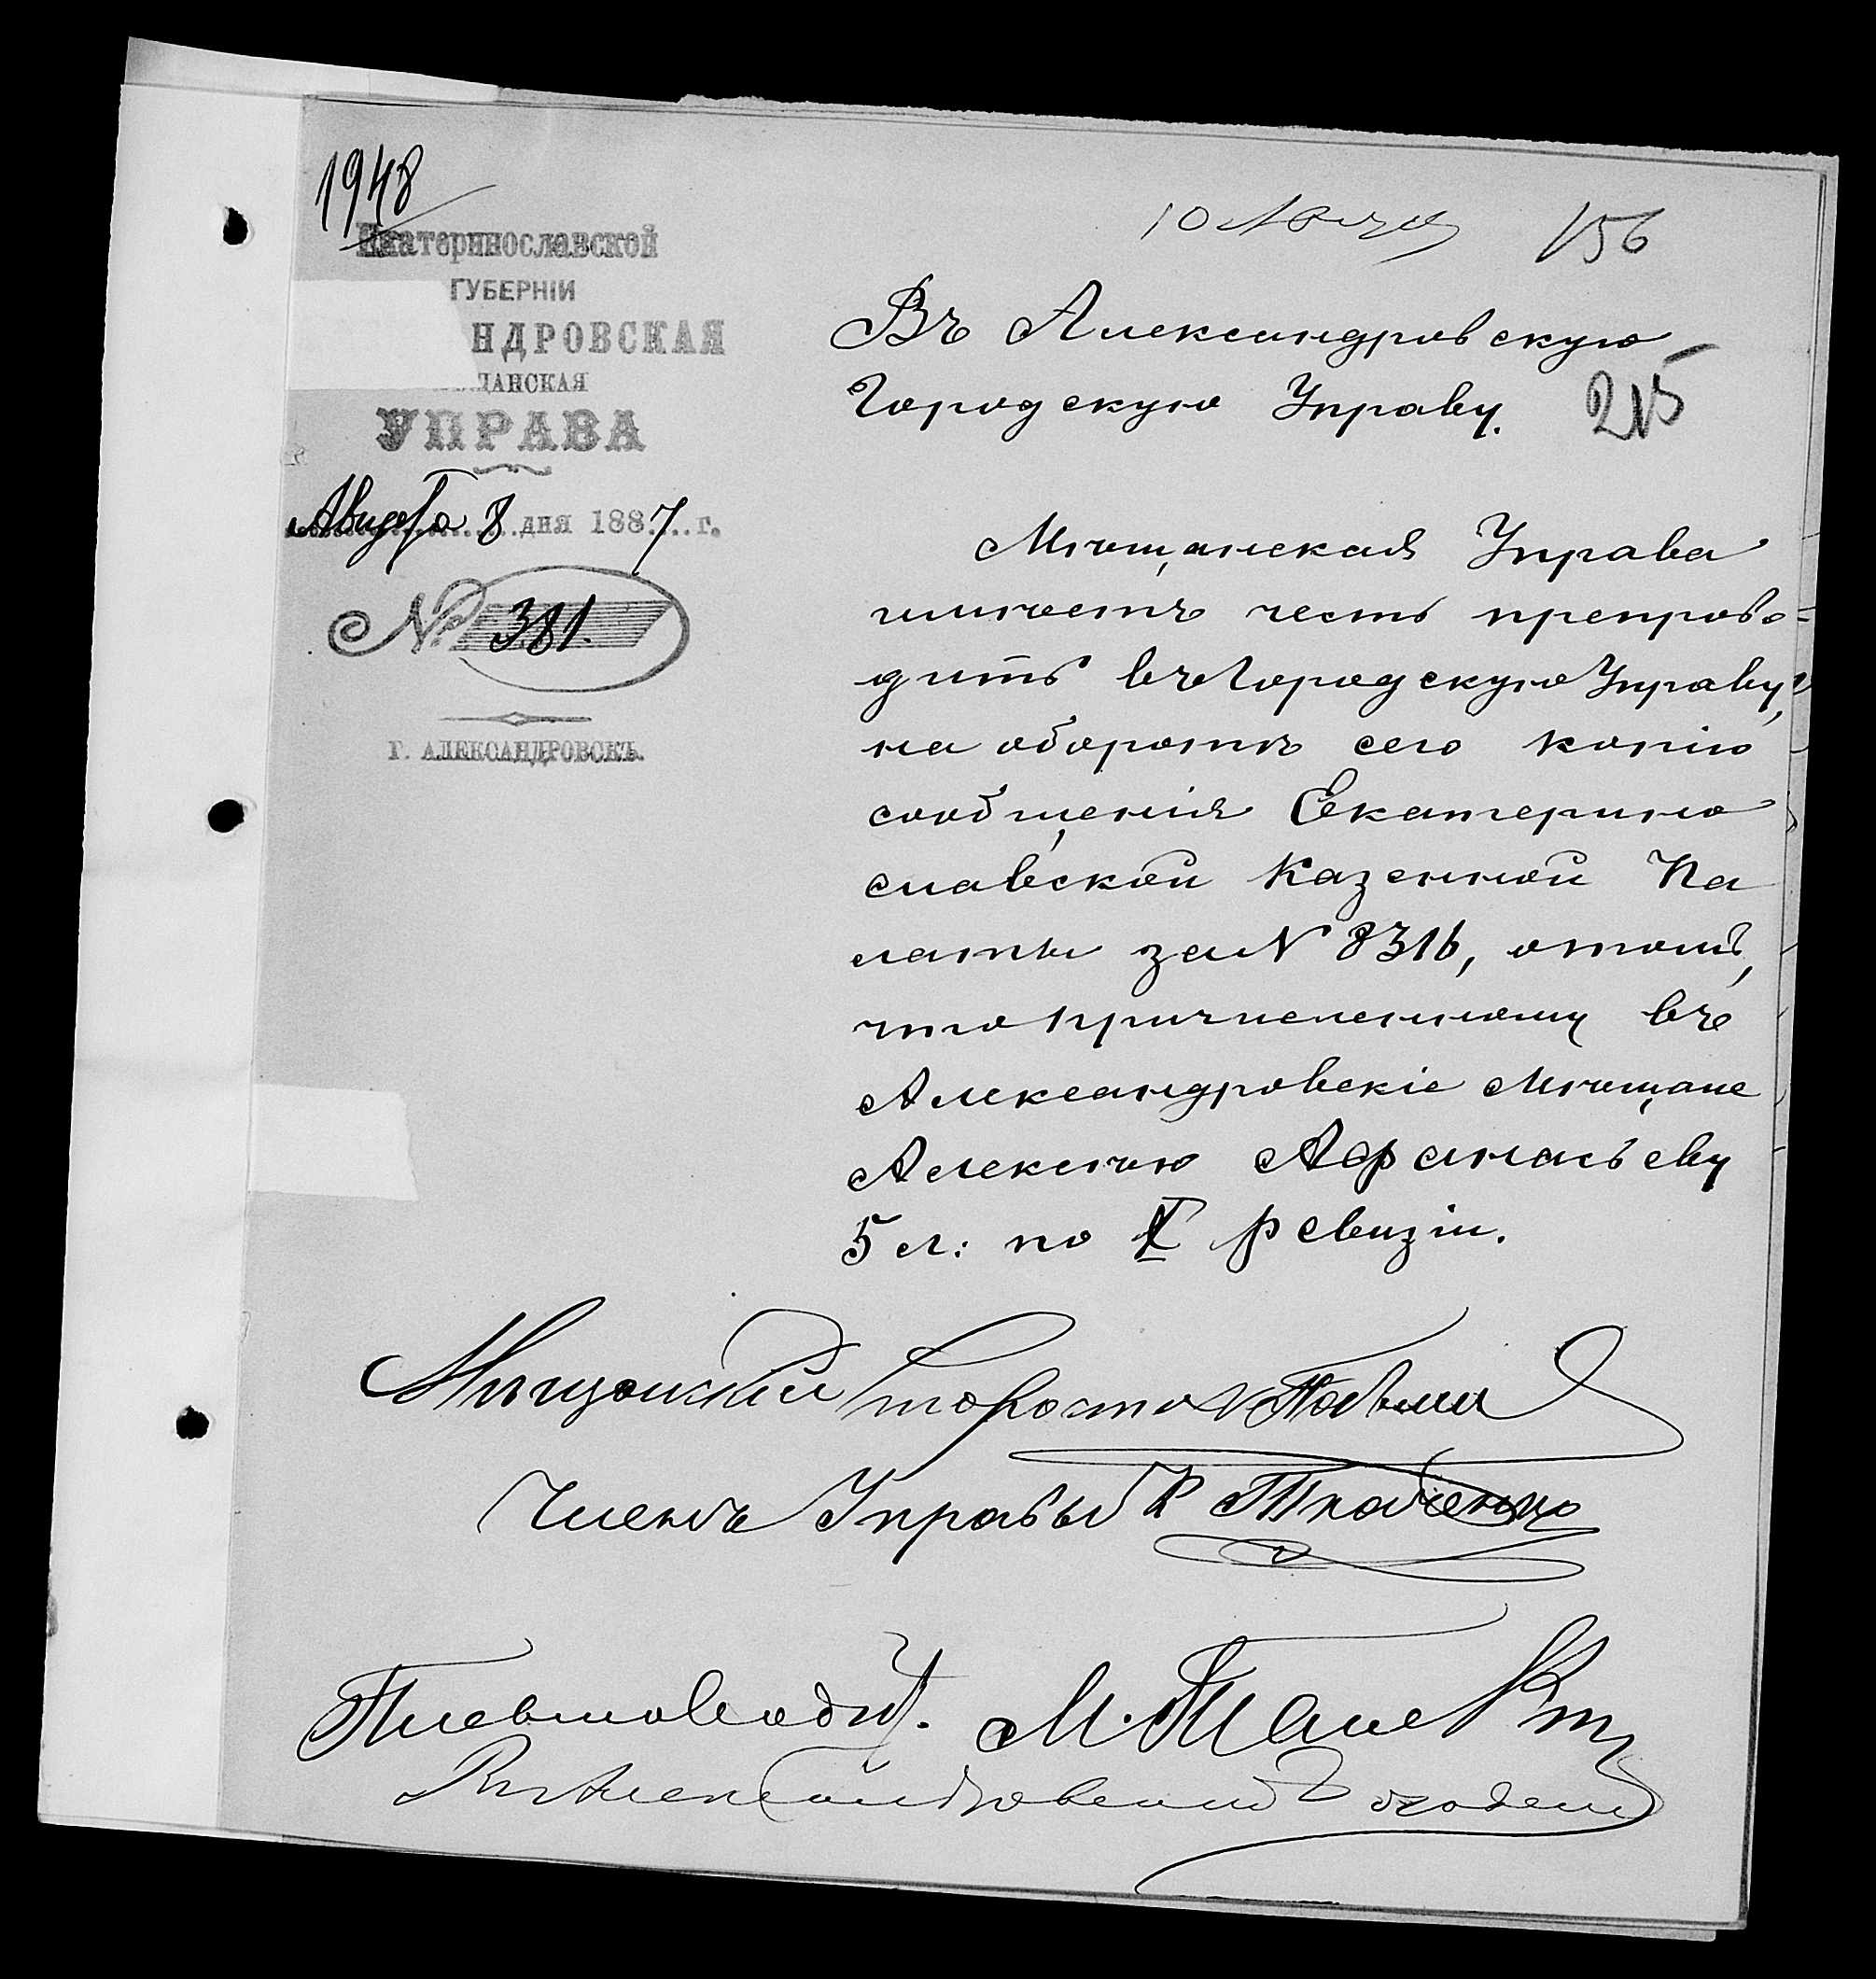 1948
Екатеринославской
ГУБЕРНІИ
НДРОВСКАЯ
ЩАНСКАЯ
УПРАВА
Августа 8 дня 1887 г.
№ 381.
Г. АЛЕКСАНДРОВСКЪ.
10 156
Въ Александровскую
Городскую Управу.
215
Мѣщанская Управа
имѣетъ честь препрово-
дить въ Городскую Управу,
на оборотѣ сего копію
сообщенія Екатерино
славской Казенной Па
латы за N 8316, о томъ,
что причисленному въ
Александровскіе Мѣщане
Алексѣю Афанасьеву
5 л: по X ревизіи.
Мѣщанскій староста
Членъ Управы К Ткаченко
Письмоводит. М.